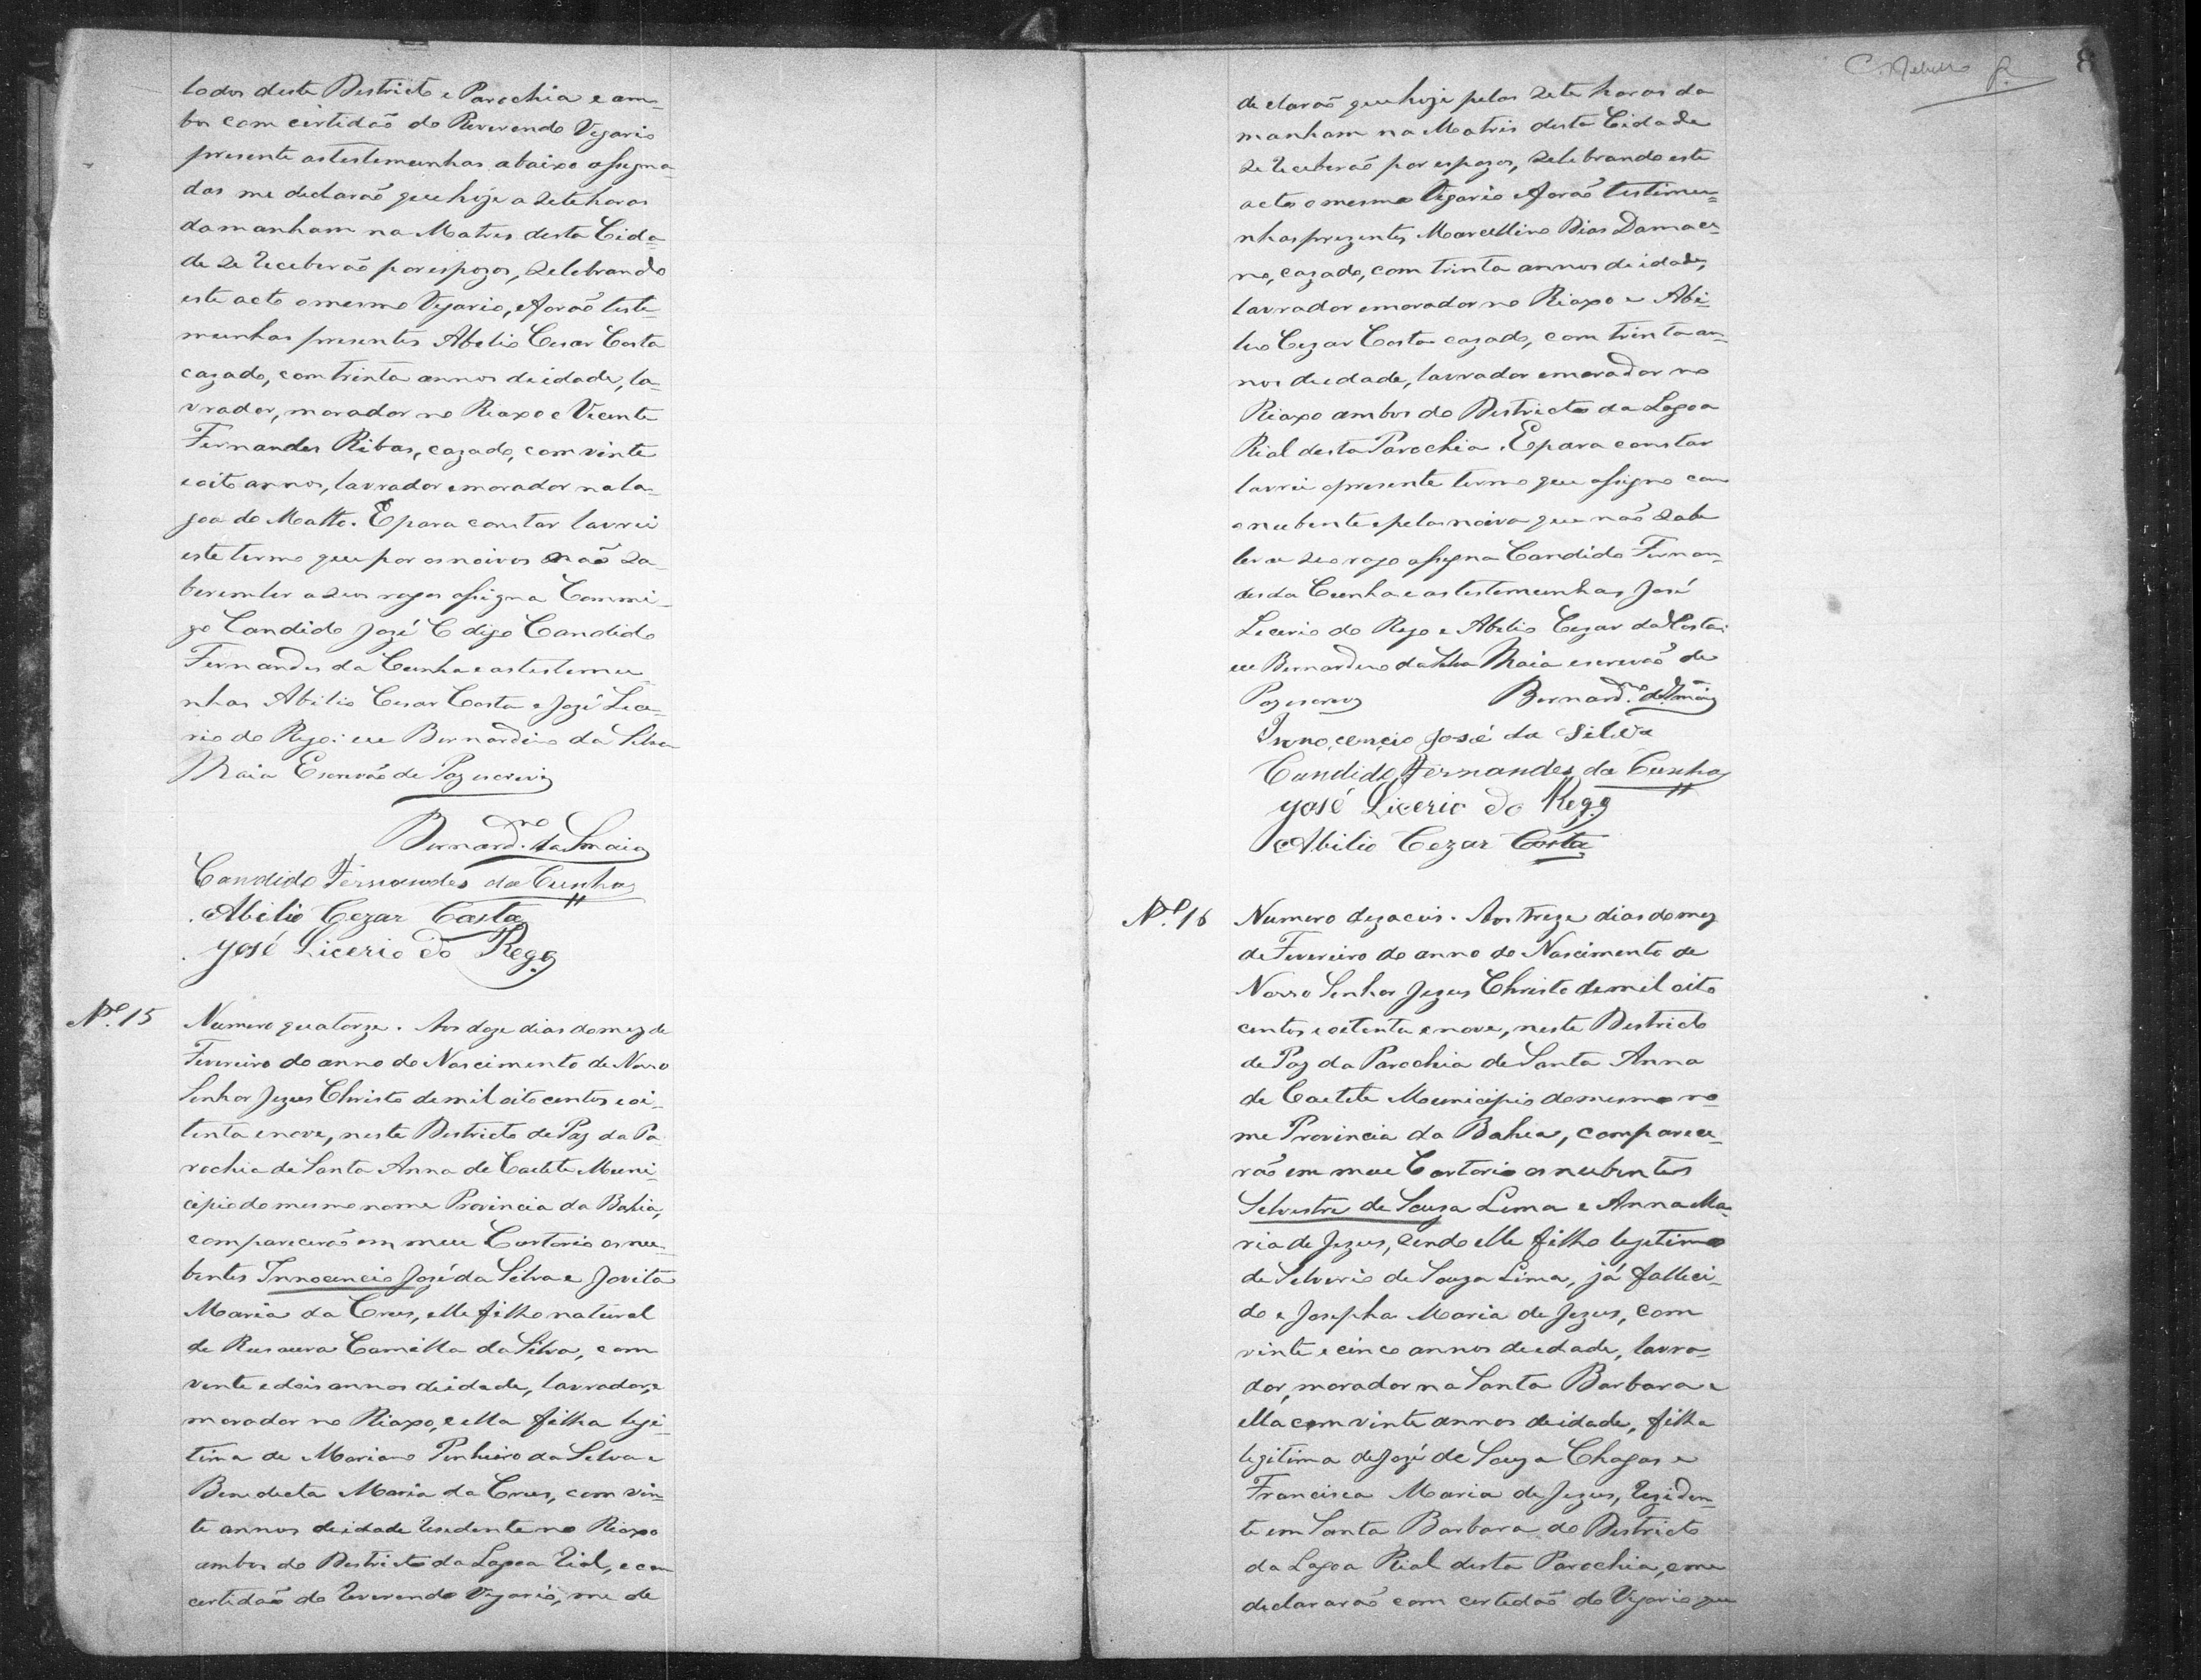 lados deste Destricto e Parochia e am-
bos com certidão do Reverendo Vigario
presente as testemunhas abaixo assigna-
das me declarão que hoje a sete horas
da manham na Matris desta Cida-
de se receberão por espozos, selebrando
este acto o mesmo Vigario, e forão teste-
munhas presentes Abilio Cesar Costa
cazado, com trinta annos de idade, la-
vrador, morador no Riaxo e Vicente
Fernandes Ribas, cazado, com vinte
e oito annos, lavrador e morador na la-
goa do Matto. E para constar lavrei
este termo que por os noivos não sa-
berem ler a seos rogos assigna Commi-
go Candido José C digo Candido
Fernandes da Cunha e as testemu-
nhas Abilio Cesar Costa e Jozé Lice-
rio do Rego: eu Bernardino da Silva
Maia Escrivão de Paz escrevi
Bernard.no da S Maia
Candido Fernandes da Cunha
Abilio Cezar Costa
José Licerio do Rego
N.º 15 Numero quatorze. Aos doze dias do mez de
Fevereiro do anno do Nascimento de Nosso
Senhor Jezus Christo de mil oito centos e oi-
tenta e nove, neste Destricto de Paz da Pa-
rochia de Santa Anna de Caetete Muni-
cipio do mesmo nome Provincia da Bahia,
comparecerão em meu Cartorio os nu-
bentes Innocencio Jozé da Silva e Jovita
Maria da Crus, elle filho natural
de Rusaura Camilla da Silva, com
vente e dois annos de idade, lavrador, e
morador no Riaxo, e ella filha legi-
tima de Mariano Pinheiro da Silva e
Benedicta Maria da Crus, com vin-
te annos de idade resedente no Riaxo
ambos do Destricto da Lagoa rial, e com
certidão do reverendo Vigario, me de
C. Rebello
8
declarão que hoje pelas sete horas da
manham na Matris desta Cidade
se receberão por espozos, selebrando este
acto o mesmo Vigario e forão testimu-
nhas prezentes Marcellino Dias Damace-
no, cazado, com trinta annos de idade,
lavrador e morador no Riaxo e Abi-
lio Cezar Costa cazado, com trinta an-
nos de edade, lavrador e morador no
Riaxo ambos do Destricto da Lagoa
Rial desta Parochia. E para constar
lavrei o presente termo que assigno com
o nubente e pela noiva que não sabe
ler a seo rogo assigna Candido Fernan-
des da Cunha e as testemunhas José
Licerio do Rego e Abilio Cezar da Costa:
eu Bernardino da Silva Maia escrivão de
Paz escrevi Bernard.no da S. Maia
Innocencio José da Silva
Candido Fernandes da Cunha
José Licerio do Rego
Abilio Cezar Costa
N.º 16 Numero dezaceis. Aos treze dias do mez
de Fevereiro do anno do Nascimento de
Nosso Senhor Jezus Christo de mil oito
centos e oitenta e nove, neste Destricto
de Paz da Parochia de Santa Anna
de Caetete Municipio do mesmo no-
me Provincia da Bahia, comparece-
rão em meu Cartorio os nubentes
Selvestre de Souza Lima e Anna Ma-
ria de Jezus, sendo elle filho legetimo
de Silverio de Souza Lima, já falleci-
do e Josepha Maria de Jezus, com
vinte e cinco annos de edade, lavra-
dor, morador na Santa Barbara e
ella com vinte annos de idade, filha
legitima de Jozé de Souza Chagas e
Francisca Maria de Jezus, reziden-
te em Santa Barbara do Destricto
da Lagoa Rial desta Parochia, e me
declararão com certedão do Vigario que